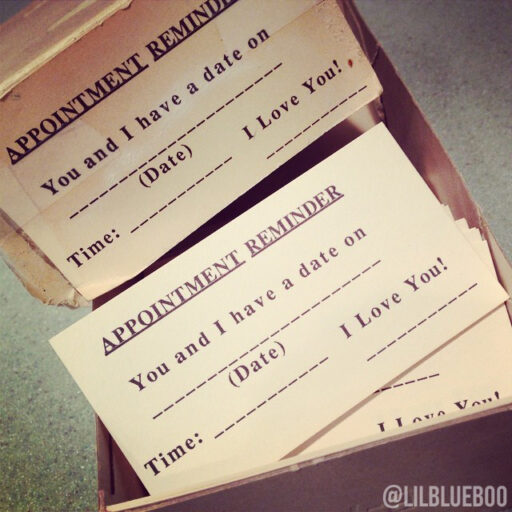 APPOINTMENT REMINDER
You and I have a date on
(Date)
I Love You!
Time:
APPOINTMENT REMINDER
You and I have a date on
(Date)
I Love You!
Time:
I Love You!
@LILBLUEBOO